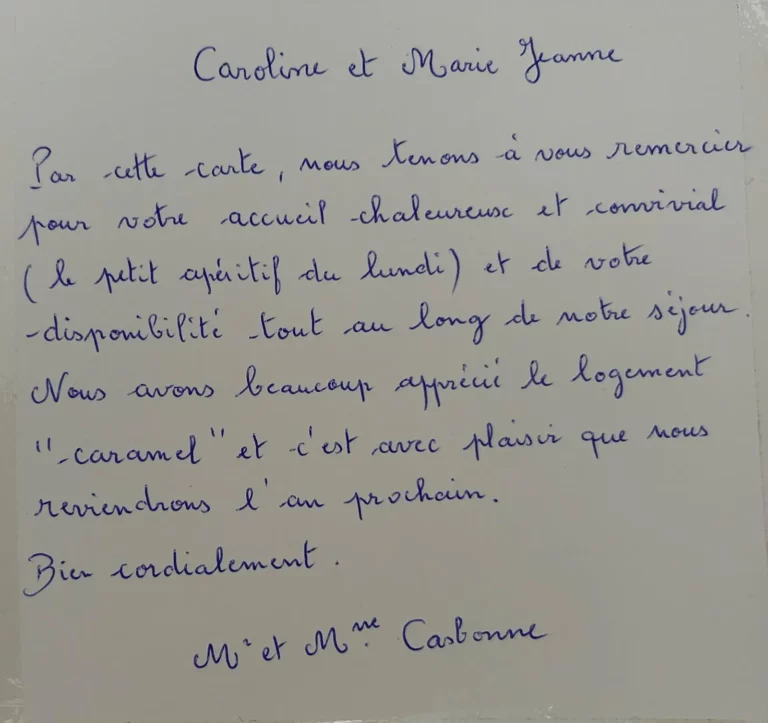 Caroline et Marie Jeanne
Par cette carte, nous tenons à vous remercier
pour votre accueil chaleureux et convivial
(le petit apéritif du lundi) et de votre
disponibilité tout au long de notre séjour.
Nous avons beaucoup apprécié le logement
"caramel" et c'est avec plaisir que nous
reviendrons l'an prochain.
Bien cordialement.
Mr et Mme Casbonne